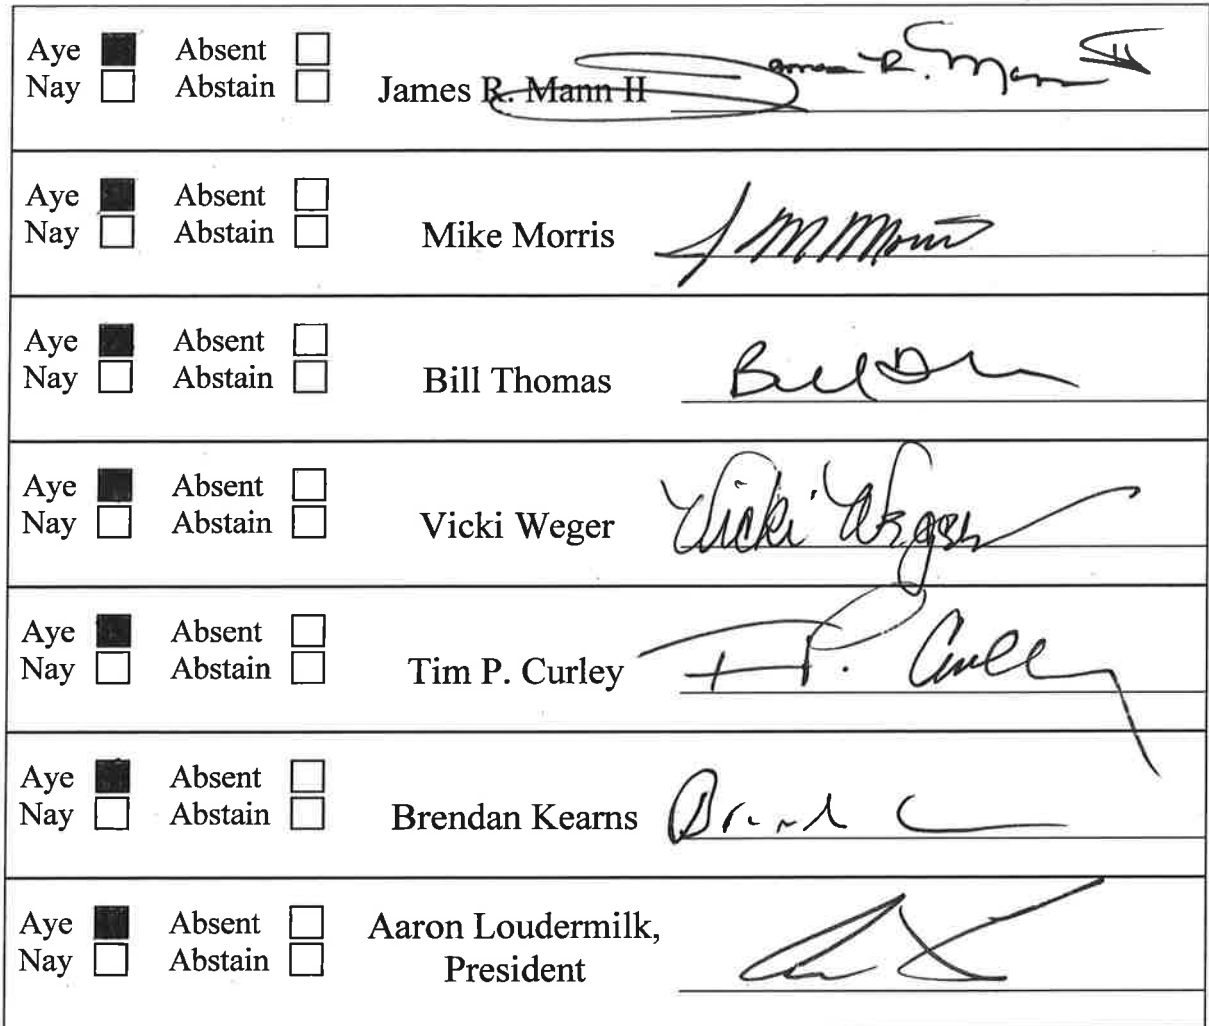 Aye ■ Absent □
Nay □ Abstain □ James R. Mann II James R. Mann II
Aye ■ Absent □
Nay □ Abstain □ Mike Morris J M Morris
Aye ■ Absent □
Nay □ Abstain □ Bill Thomas Bill
Aye ■ Absent □
Nay □ Abstain □ Vicki Weger Vicki Weger
Aye ■ Absent □
Nay □ Abstain □ Tim P. Curley T P. Curley
Aye ■ Absent □
Nay □ Abstain □ Brendan Kearns
Aye ■ Absent □ Aaron Loudermilk,
Nay □ Abstain □ President